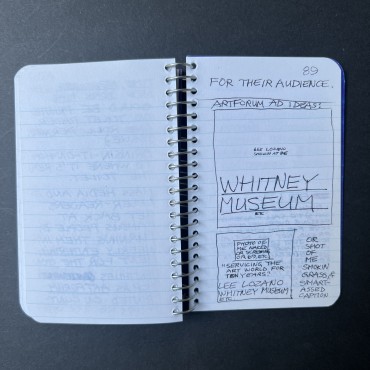 89
FOR THEIR AUDIENCE.
ARTFORUM AD IDEAS:
LEE LOZANO
SHOWN AT RE
WHITNEY
MUSEUM
ETC
PHOTO OF
ME NAKED
OR SCREWING
OR
"SERVICING THE
ART WORLD FOR
TEN YEARS"
LEE LOZANO
WHITNEY MUSEUM
ETC
OR
SHOT
OF
ME
SMOKIN
GRASS,
SMART-
ASSED
CAPTION